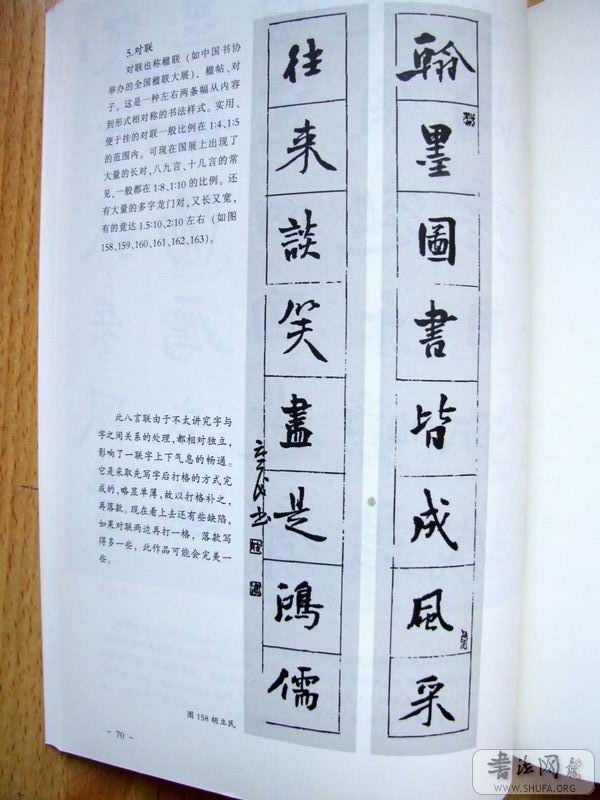 5.对联
对联也称楹联（如中国书协
举办的全国楹联大展）、楹帖、对
子。这是一种左右两条幅从内容
到形式相对称的书法样式。实用、
便于挂的对联一般比例在1:4、1:5
的范围内。可现在国展上出现了
大量的长对，八九言、十几言的常
见，一般都在1:8、1:10的比例。还
有大量的多字龙门对，又长又宽，
有的竟达1.5:10、2:10左右（如图
158、159、160、161、162、163）。
此八言联由于不太讲究字与
字之间关系的处理，都相对独立，
影响了一联字上下气息的畅通。
它是采取先写字后打格的方式完
成的，略显单薄，故以打格补之，
再落款。现在看上去还有些缺陷，
如果对联两边再打一格，落款写
得多一些，此作品可能会完美一
些。
翰墨圖書皆成風采
往来談笑盡是鴻儒
立民书
图 158 胡立民
- 70 -
书法网
WWW.SHUFA.ORG